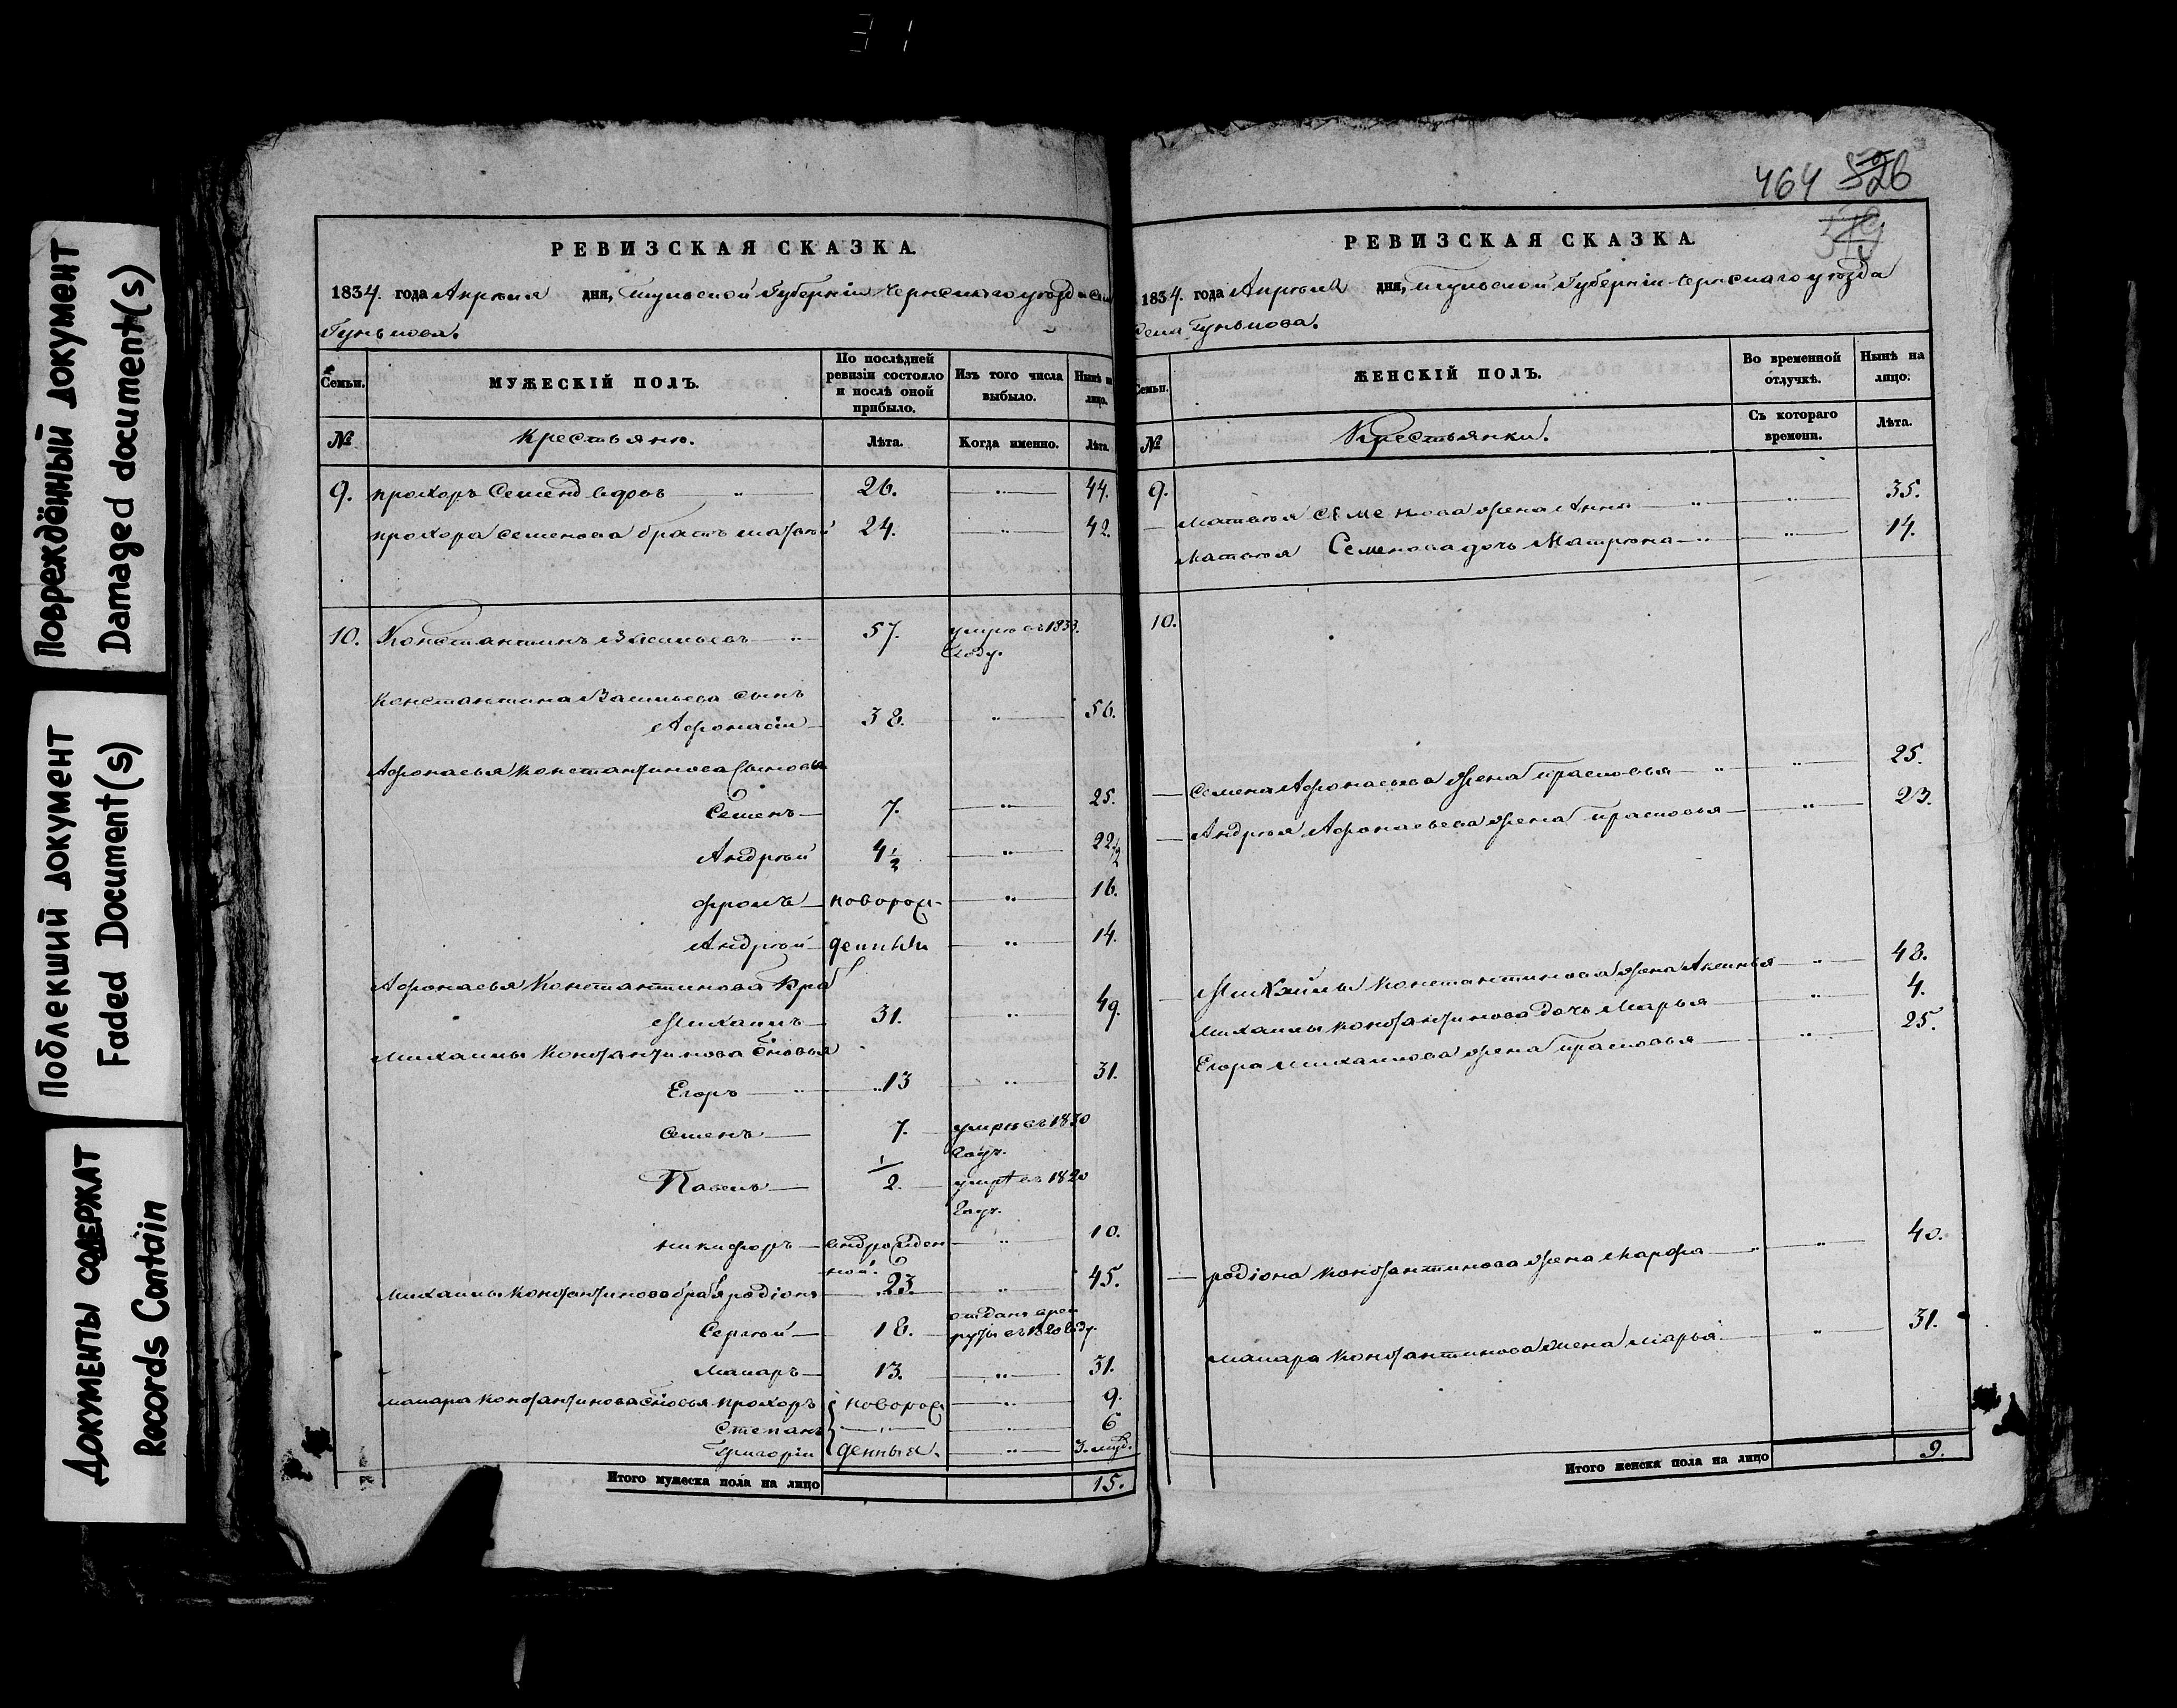 Повреждённый документ
Damaged document(s)
Поблекший документ
Faded Document(s)
Документы содержат
Records Contain
РЕВИЗСКАЯ СКАЗКА.
1834. года Апрѣля дня, Тульской Губерніи Чернскаго уѣзда села
Гунькова.
Семьи. МУЖЕСКІЙ ПОЛЪ. По послѣдней ревизіи состояло и послѣ оной прибыло. Изъ того числа выбыло. Нынѣ на лицо.
№ Крестьяне. Лѣта. Когда именно. Лѣта.
9. прохоръ Семенов 26. 44.
прохора семенова братъ матвей 24. 42.
10. Константинъ Васильевъ 57. умре въ 1833.
году.
Константина Васильева сынъ
Афонасіи 38. 56.
Афонасья Константинова сыновья
Семенъ 7. 25.
Андрѣй 4½ 22½
фролъ новорож- 16.
Андрѣй денныи 14.
Афонасья Константинова бра
Михаилъ 31. 49.
Михаилы Константинова сновья
Егоръ 13 31.
Семенъ 7. умре въ 1830
году.
Павелъ ½. умре въ 1820
году.
никифоръ новрожден 10.
ной.
Михаилы Константинова братъ родіонъ 23. 45.
отданъ в рек
Сергѣй 18. руты въ 1820 году.
Макаръ 13. 31.
макара Константинова сновья прохоръ новорож 9.
Степанъ 6
Григоріи денныя. 3. мид.
Итого мужеска пола на лицо 15.
464 526
РЕВИЗСКАЯ СКАЗКА.
1834. года Апрѣля дня, Тульской Губерніи Чернскаго уѣзда
села Гунькова.
Семьи. ЖЕНСКІЙ ПОЛЪ. Во временной отлучкѣ. Нынѣ на лицо.
№ Крестьянки. Съ котораго времени. Лѣта.
9. Матвѣя Семенова жена Анна 35.
Матвѣя Семенова дочь Матрена 14.
10.
Семена Афонасьева жена прасковья 25.
Андрѣя Афонасьева жена прасковья 23.
Михайлы Константинова жена Аксинья 48.
Михаилы Константинова дочь Марья 4.
Егора михаилова жена прасковья 25.
родіона Константинова жена марфа 40.
макара Константинова жена марья 31.
Итого женска пола на лицо 9.